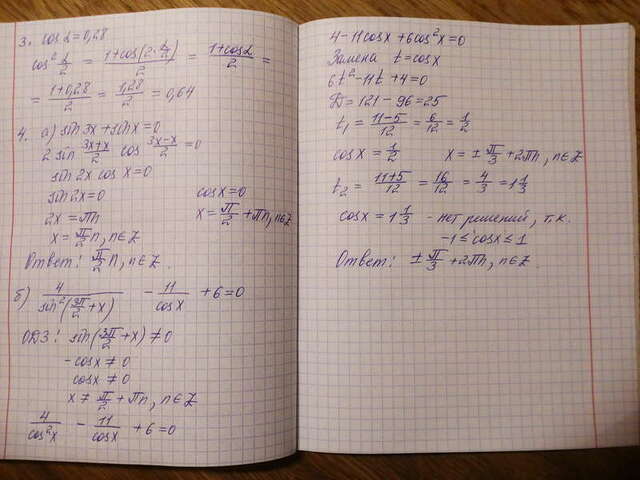 3. cos α = 0,28
cos² α/2 = (1+cos(2·α/2))/2 = (1+cosα)/2 =
= (1+0,28)/2 = 1,28/2 = 0,64
4. а) sin3x + sinx = 0
2 sin (3x+x)/2 cos (3x-x)/2 = 0
sin 2x cos x = 0
sin 2x = 0 cosx = 0
2x = πn x = π/2 + πn, n∈Z
x = π/2 n, n∈Z
Ответ: π/2 n, n∈Z.
б) 4/sin²(3π/2 + x) - 11/cosx + 6 = 0
ОДЗ: sin(3π/2 + x) ≠ 0
-cosx ≠ 0
cosx ≠ 0
x ≠ π/2 + πn, n∈Z
4/cos²x - 11/cosx + 6 = 0
4 - 11cosx + 6cos²x = 0
Замена t = cosx
6t² - 11t + 4 = 0
D = 121 - 96 = 25
t₁ = (11-5)/12 = 6/12 = 1/2
cosx = 1/2 x = ± π/3 + 2πn, n∈Z
t₂ = (11+5)/12 = 16/12 = 4/3 = 1 1/3
cosx = 1 1/3 - нет решений, т.к.
-1 ≤ cosx ≤ 1
Ответ: ± π/3 + 2πn, n∈Z